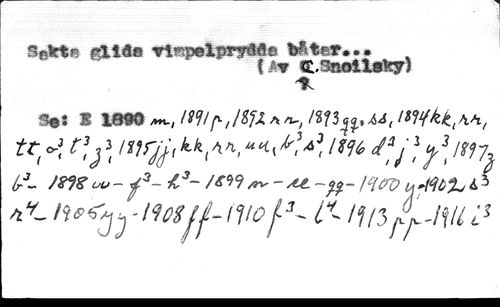 Sakta glida vimpelprydda båtar...
(Av C.Snoilsky)
?
Se: E 1890 m, 1891 p, 1892 rr, 1893 qq, ss, 1894 kk, rr,
tt, o³, t³, z³, 1895 jj, kk, rr, uu, b³, s³, 1896 d³, j³, y³, 1897 z
b³ - 1898 w - f³ - h³ - 1899 n - ee - qq - 1900 y - 1902 s³
r⁴ - 1905 yy - 1908 ff - 1910 f³ - l⁴ - 1913 pp - 1916 i³